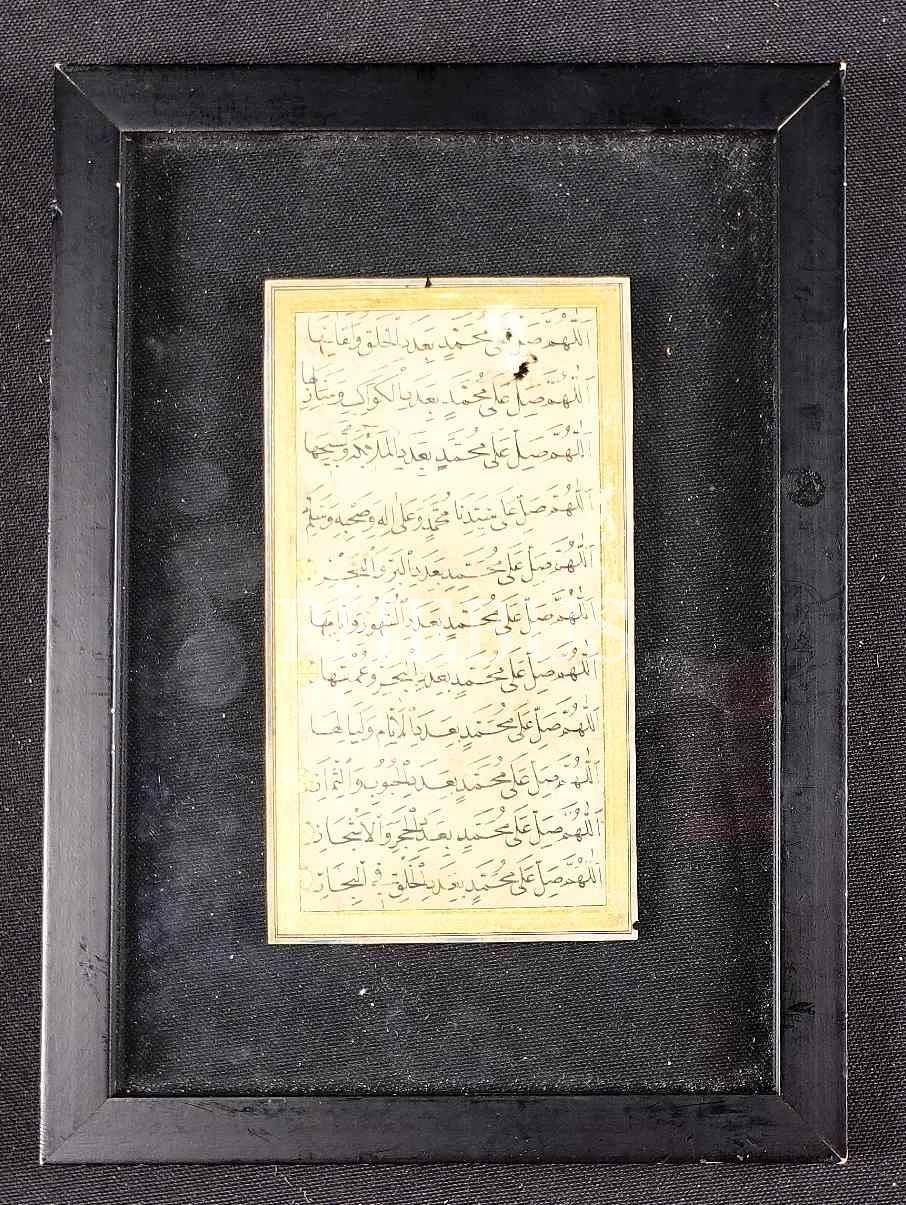 اَللّٰهُمَّ صَلِّ عَلٰى مُحَمَّدٍ بِعَدَدِ الْخَلْقِ
اَللّٰهُمَّ صَلِّ عَلٰى مُحَمَّدٍ بِعَدَدِ الْكَوَاكِبِ وَمَنَازِلِهَا
اَللّٰهُمَّ صَلِّ عَلٰى مُحَمَّدٍ بِعَدَدِ
اَللّٰهُمَّ صَلِّ عَلٰى سَيِّدِنَا مُحَمَّدٍ وَعَلٰى اٰلِهِ وَصَحْبِهِ وَسَلِّمْ
اَللّٰهُمَّ صَلِّ عَلٰى مُحَمَّدٍ بِعَدَدِ الْبَرِّ وَالْبَحْرِ
اَللّٰهُمَّ صَلِّ عَلٰى مُحَمَّدٍ بِعَدَدِ الشُّهُورِ وَاَيَّامِهَا
اَللّٰهُمَّ صَلِّ عَلٰى مُحَمَّدٍ بِعَدَدِ
اَللّٰهُمَّ صَلِّ عَلٰى مُحَمَّدٍ بِعَدَدِ الْاَيَّامِ وَلَيَالِيهَا
اَللّٰهُمَّ صَلِّ عَلٰى مُحَمَّدٍ بِعَدَدِ الْحُبُوبِ
اَللّٰهُمَّ صَلِّ عَلٰى مُحَمَّدٍ بِعَدَدِ الْحَجَرِ وَالْاَشْجَارِ
اَللّٰهُمَّ صَلِّ عَلٰى مُحَمَّدٍ بِعَدَدِ الْخَلْقِ فِي الْبِحَارِ